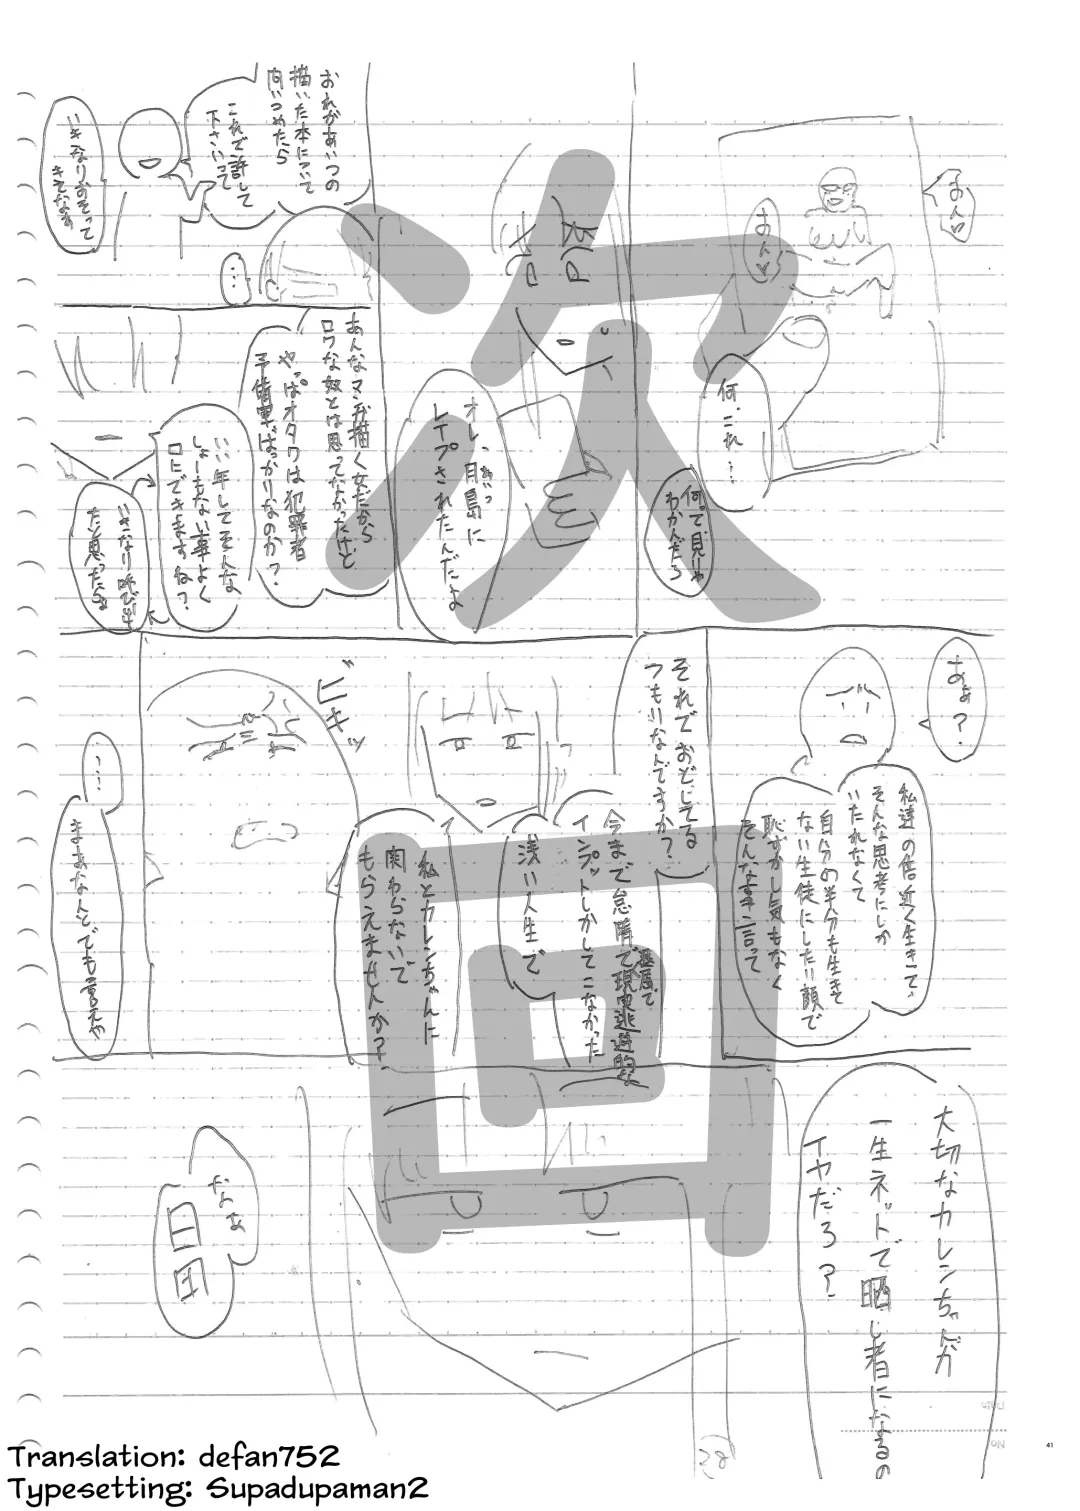 おん♡
おん♡
何、これ…
何って見りゃ
わかんだろ
オレ、月島に
あいつ
レイプされたんだよ
おれがあいつの
描いた本について
問いつめたら
これで許して
下さいって
いきなりおそって
きてなぁ
…
あんなマンガ描く女だから
ロクな奴とは思ってなかったけど
やっぱオタクは犯罪者
予備軍ばっかりなのか?
いい年してそんな
しょーもない事よく
口にできますね?
いきなり呼び出し
たと思ったら
あぁ?
私達の倍近く生きて、
そんな思考にしか
いたれなくて
自分の半分も生きて
ない生徒にしたい顔で
恥ずかし気もなく
そんな事言って
それでおどしてる
つもりなんですか?
今まで怠惰で現実逃避的な
インプットしかしてこなかった
浅い人生で
私とカレンちゃんに
関わらないで
もらえませんか?
ビキッ
…
まあなんとでも言えや
大切なカレンちゃんが
一生ネットで晒し者になるの
イヤだろ?
なぁ
白田
次回
38
41
No.
Translation: defan752
Typesetting: Supadupaman2